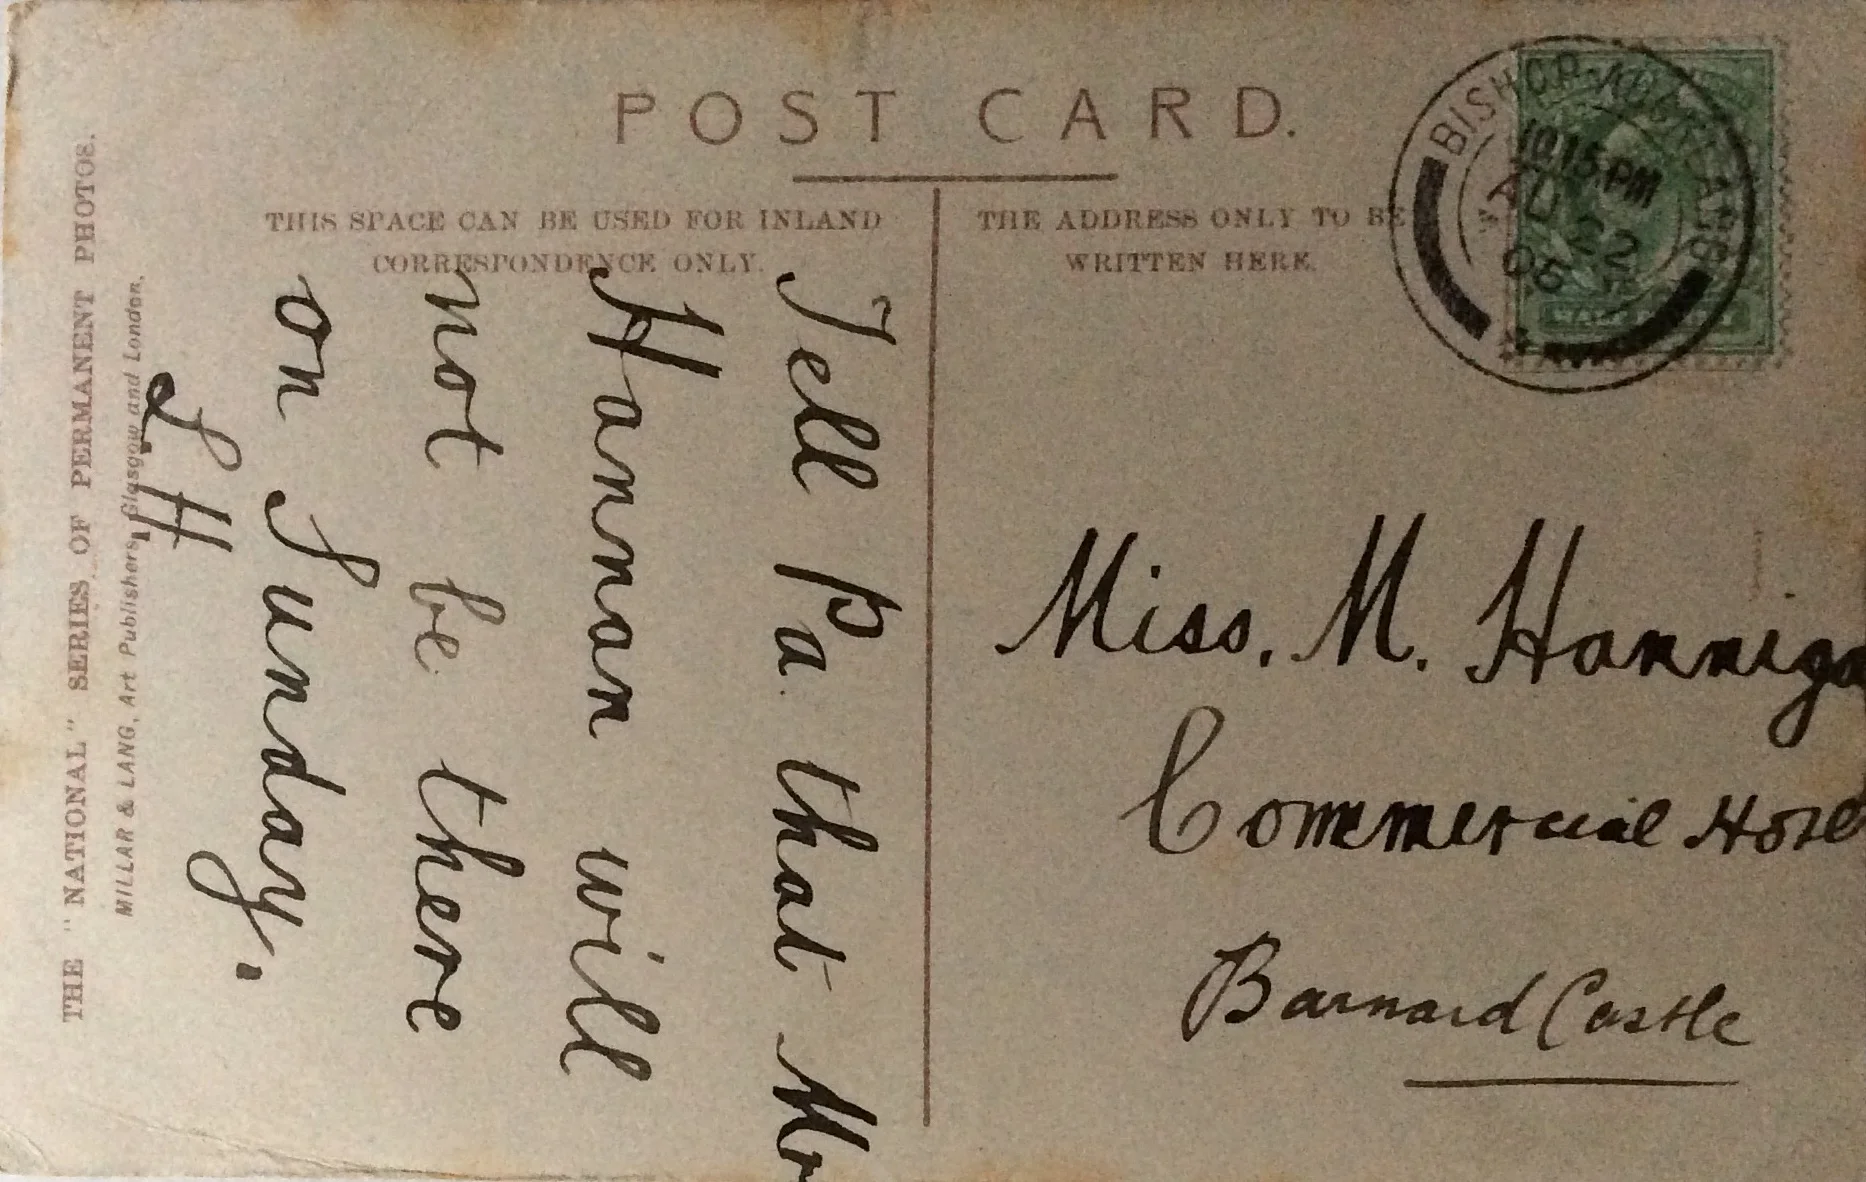 POST CARD.
THIS SPACE CAN BE USED FOR INLAND
CORRESPONDENCE ONLY.
THE ADDRESS ONLY TO BE
WRITTEN HERE.
BISHOP AUCKLAND
10.15 PM
AU 22
05
Tell Pa that Mr
Hannan will
not be there
on Sunday.
L.H.
Miss. M. Henniga
Commercial Hotel
Barnard Castle
THE "NATIONAL" SERIES OF PERMANENT PHOTOS.
MILLAR & LANG, Art Publishers, Glasgow and London.